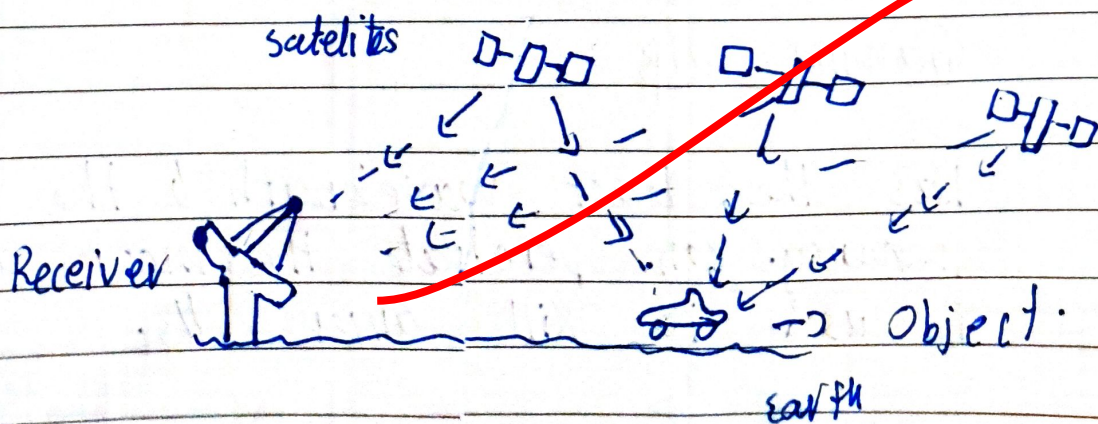 satelites
Receiver
-> Object.
earth